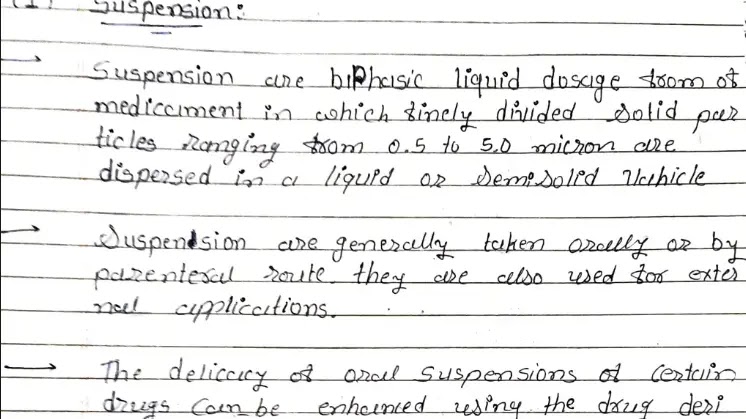 (1) Suspension:
→ Suspension are biphasic liquid dosage from of
medicament in which finely divided solid par
ticles ranging from 0.5 to 5.0 micron are
dispersed in a liquid or semisolid Vahicle
→ Suspension are generally taken orally or by
parenteral route. they are also used for exter
nal applications.
→ The delicacy of oral suspensions of certain
drugs can be enhanced using the drug deri